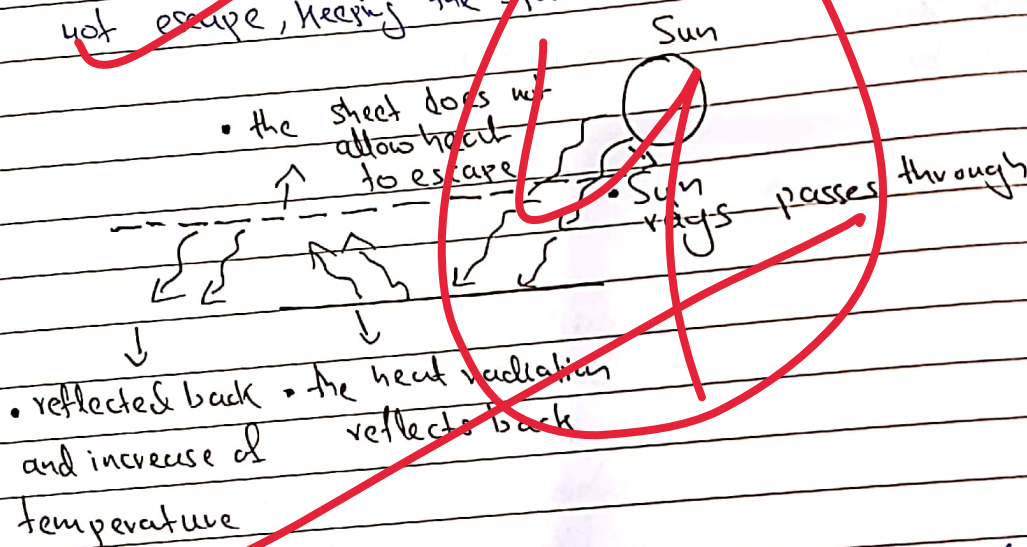 not escape, keeping the
Sun
• the sheet does not
allow heat
to escape
• Sun
rays passes through
• reflected back
and increase of
temperature
• the heat radiation
reflects back